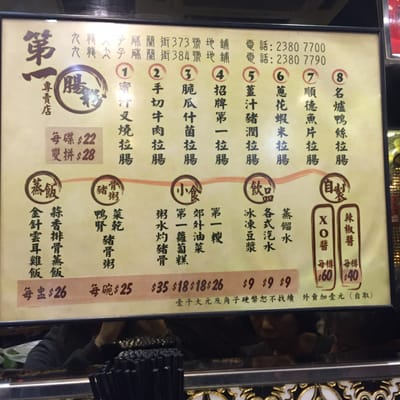 第一
專賣店
腸粉
九龍太子砵蘭街373號地舖 電話:2380 7700
九龍太子砵蘭街384號地舖 電話:2380 7790
每碟$22
雙拼$28
1 蜜汁叉燒拉腸
2 手切牛肉拉腸
3 脆瓜什菌拉腸
4 招牌第一拉腸
5 薑汁豬潤拉腸
6 蔥花蝦米拉腸
7 順德魚片拉腸
8 名爐鴨絲拉腸
蒸飯
蒜香排骨蒸飯
金針雲耳雞飯
每盅$26
豬骨粥
菜乾豬骨粥
鴨腎
每碗$25
小食
第一粿
郊外油菜
第一蘿蔔糕
粥水灼豬骨
$35 $18 $18 $26
飲品
蒸餾水
各式汽水
冰凍豆漿
$9 $9 $9
自製
辣椒醬
每樽
$40
XO醬
每樽
$60
壹仟大元及角子硬幣恕不找續 外賣加壹元(自取)